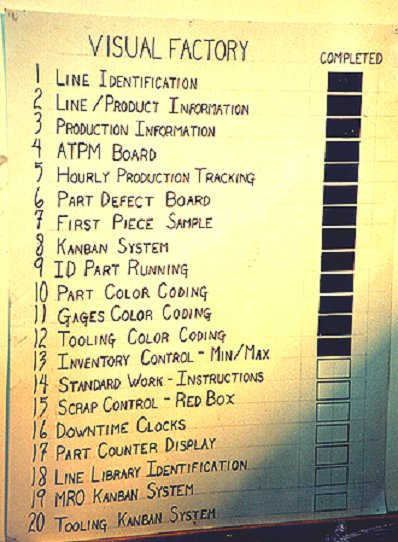 VISUAL FACTORY
COMPLETED
1 LINE IDENTIFICATION
2 LINE/PRODUCT INFORMATION
3 PRODUCTION INFORMATION
4 ATPM BOARD
5 HOURLY PRODUCTION TRACKING
6 PART DEFECT BOARD
7 FIRST PIECE SAMPLE
8 KANBAN SYSTEM
9 ID PART RUNNING
10 PART COLOR CODING
11 GAGES COLOR CODING
12 TOOLING COLOR CODING
13 INVENTORY CONTROL - MIN/MAX
14 STANDARD WORK - INSTRUCTIONS
15 SCRAP CONTROL - RED BOX
16 DOWNTIME CLOCKS
17 PART COUNTER DISPLAY
18 LINE LIBRARY IDENTIFICATION
19 MRO KANBAN SYSTEM
20 TOOLING KANBAN SYSTEM